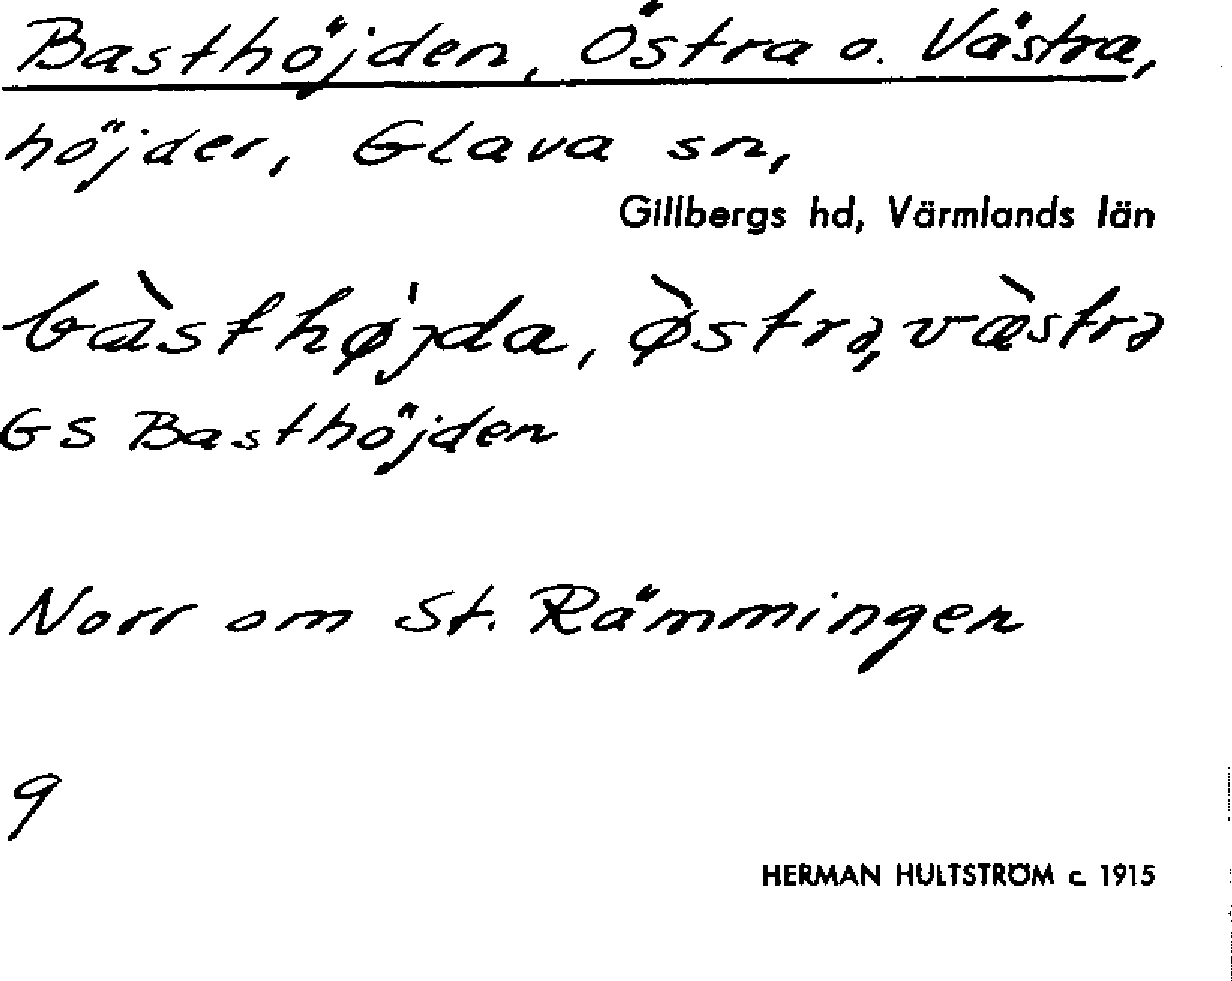 Basthöjden, Östra o. Västra,
höjder, Glava sn,
Gillbergs hd, Värmlands län
bàsthø̍jda, ø̀strə, væ̀strə
GS Basthöjden
Norr om St. Rämmingen
9
HERMAN HULTSTRÖM c. 1915